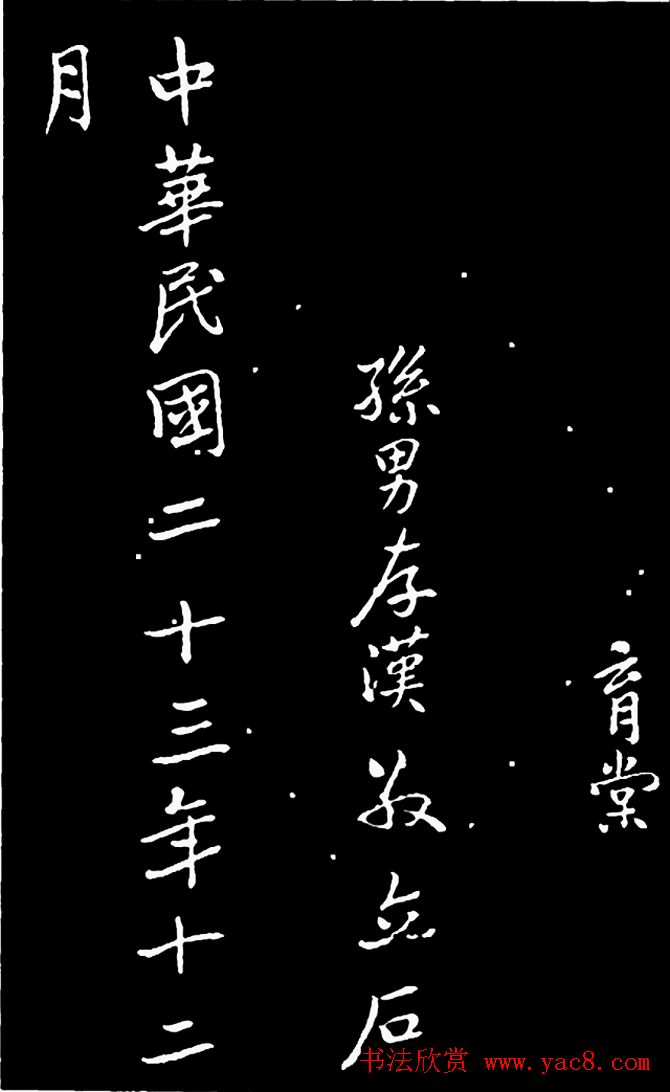 育棠
孫男存漢敬立石
中華民國二十三年十二
月
书法欣赏 www.yac8.com